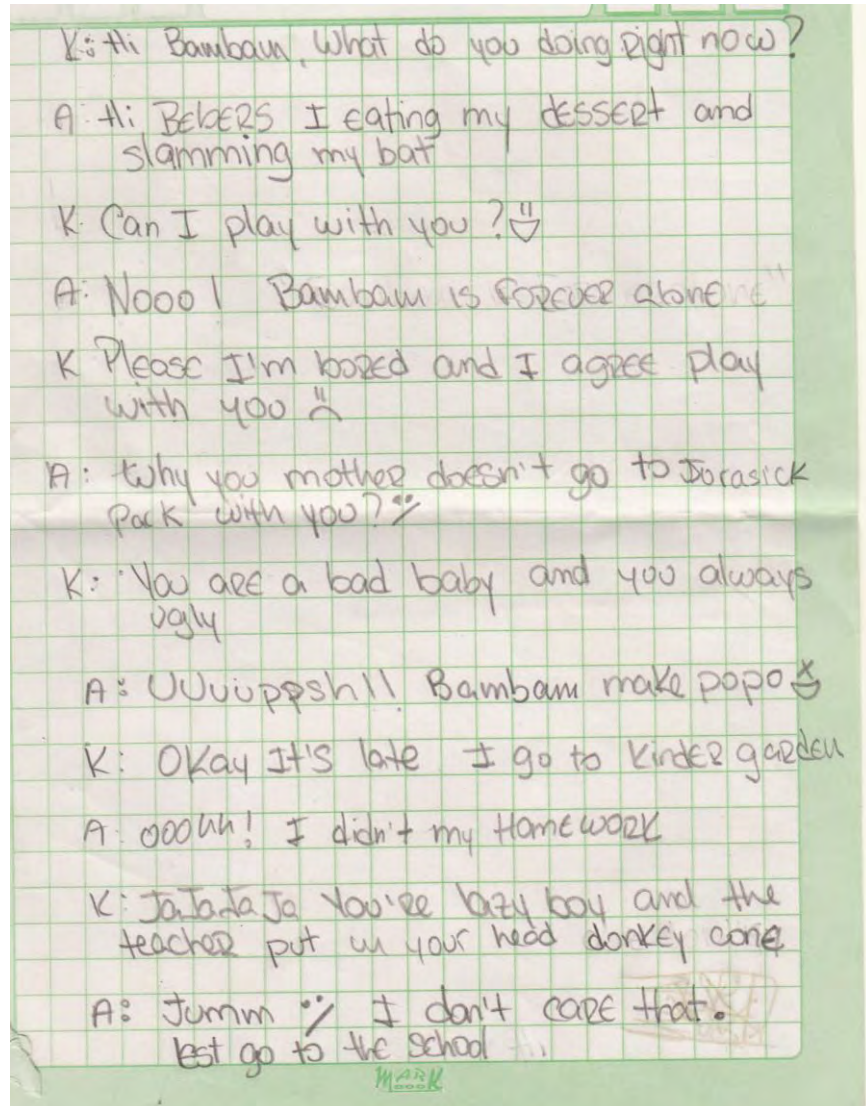 K: Hi Bambam, What do you doing right now?
A: Hi BEbERS I Eating my dessert and
slamming my bat
K: Can I play with you?
A: Nooo! Bambam is forever alone
K Please I'm bored and I agree play
with you
A: Why you mother doesn't go to Jurasick
Pack with you?
K: You are a bad baby and you always
ugly
A: UUuuppsh!! Bambam make popo
K: Okay It's late I go to kinder garden
A: ooohh! I didn't my Homework
K: JaJaJaJa You're lazy boy and the
teacher put in your head donkey cone
A: Jumm I don't care that.
lest go to the school
MARK